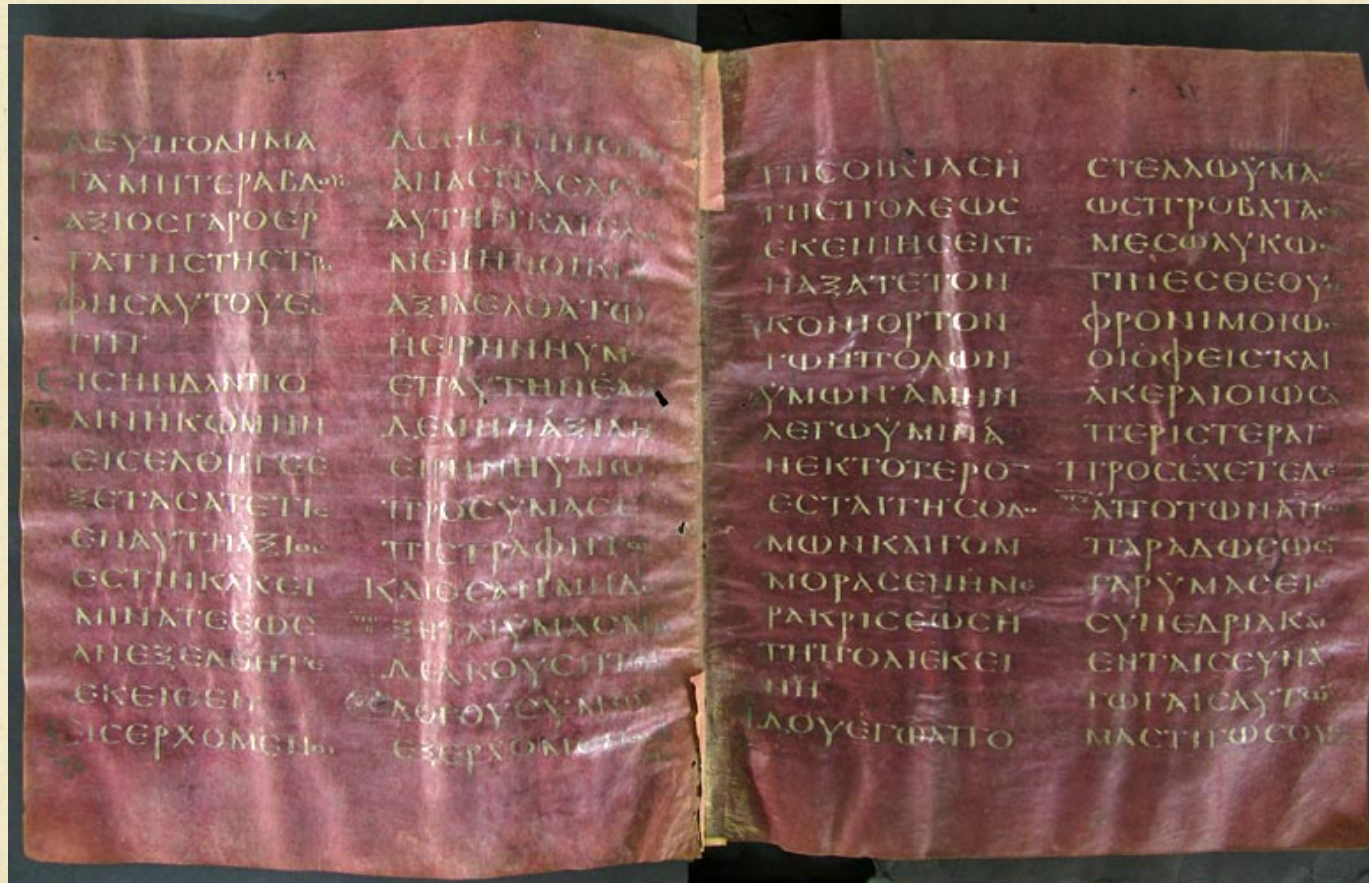 ΔΕΥΠΟΔΗΜΑ
ΤΑΜΗΤΕΡΑΒΔΟΥϹ
ΑΞΙΟϹΓΑΡΟΕΡ
ΓΑΤΗϹΤΗϹΤΡΟ
ΦΗϹΑΥΤΟΥΕϹ
ΤΙΝ
ΕΙϹΗΝΔΑΝΠΟ
ΛΙΝΗΚΩΜΗΝ
ΕΙϹΕΛΘΗΤΕΕ
ΞΕΤΑϹΑΤΕΤΙϹ
ΕΝΑΥΤΗΑΞΙΟϹ
ΕϹΤΙΝΚΑΚΕΙ
ΜΙΝΑΤΕΕΩϹ
ΑΝΕΞΕΛΘΗΤΕ
ΕΚΕΙΘΕΝ
ΕΙϹΕΡΧΟΜΕΝΟΙ
ΑΥΤΗΝΚΑΙΕΑ
ΜΕΝΗΗΟΙΚΙ
ΑΞΙΑΕΛΘΑΤΩ
ΗΕΙΡΗΝΗΫΜ
ΕΠΑΥΤΗΝΕΑ
ΔΕΜΗΗΑΞΙΑΗ
ΕΙΡΗΝΗΥΜΩ
ΠΡΟϹΥΜΑϹΕ
ΠΙϹΤΡΑΦΗΤΩ
ΚΑΙΟϹΑΝΜΗΔΕ
ΞΗΤΑΙΥΜΑϹΜΗ
ΔΕΑΚΟΥϹΗΤΟΥϹ
ΛΟΓΟΥϹΫΜΩ
ΕΞΕΡΧΟΜΕΝΟΙ
ΤΗϹΟΙΚΙΑϹΗ
ΤΗϹΠΟΛΕΩϹ
ΕΚΕΙΝΗϹΕΚΤΙ
ΝΑΞΑΤΕΤΟΝ
ΚΟΝΙΟΡΤΟΝ
ΤΩΝΠΟΔΩΝ
ΫΜΩΝΑΜΗΝ
ΛΕΓΩΫΜΙΝΑ
ΝΕΚΤΟΤΕΡΟ
ΕϹΤΑΙΓΗϹΟΔΟ
ΜΩΝΚΑΙΓΟΜ
ΜΟΡΑϹΕΝΗΜΕ
ΡΑΚΡΙϹΕΩϹΗ
ΤΗΠΟΛΙΕΚΕΙ
ΝΗ
ΙΔΟΥΕΓΩΑΠΟ
ϹΤΕΛΛΩΫΜΑϹ
ΩϹΠΡΟΒΑΤΑΕΝ
ΜΕϹΩΛΥΚΩΝ
ΓΙΝΕϹΘΕΟΥΝ
ΦΡΟΝΙΜΟΙΩϹ
ΟΙΟΦΕΙϹΚΑΙ
ΑΚΕΡΑΙΟΙΩϹΑΙ
ΠΕΡΙϹΤΕΡΑΙ
ΠΡΟϹΕΧΕΤΕΔΕ
ΑΠΟΤΩΝΑΝΩΝ
ΠΑΡΑΔΩϹΩϹΙ
ΓΑΡΫΜΑϹΕΙϹ
ϹΥΝΕΔΡΙΑΚΑΙ
ΕΝΤΑΙϹϹΥΝΑ
ΓΩΓΑΙϹΑΥΤΩΝ
ΜΑϹΤΙΓΩϹΟΥϹΙ